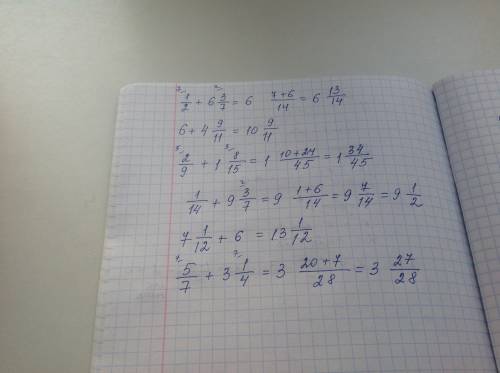 ⁷⁄ 1/2 + 6 ²⁄ 3/7 = 6 (7+6)/14 = 6 13/14
6 + 4 9/11 = 10 9/11
⁵⁄ 2/9 + 1 ³⁄ 8/15 = 1 (10+24)/45 = 1 34/45
1/14 + 9 ²⁄ 3/7 = 9 (1+6)/14 = 9 7/14 = 9 1/2
7 1/12 + 6 = 13 1/12
⁴⁄ 5/7 + 3 ⁷⁄ 1/4 = 3 (20+7)/28 = 3 27/28